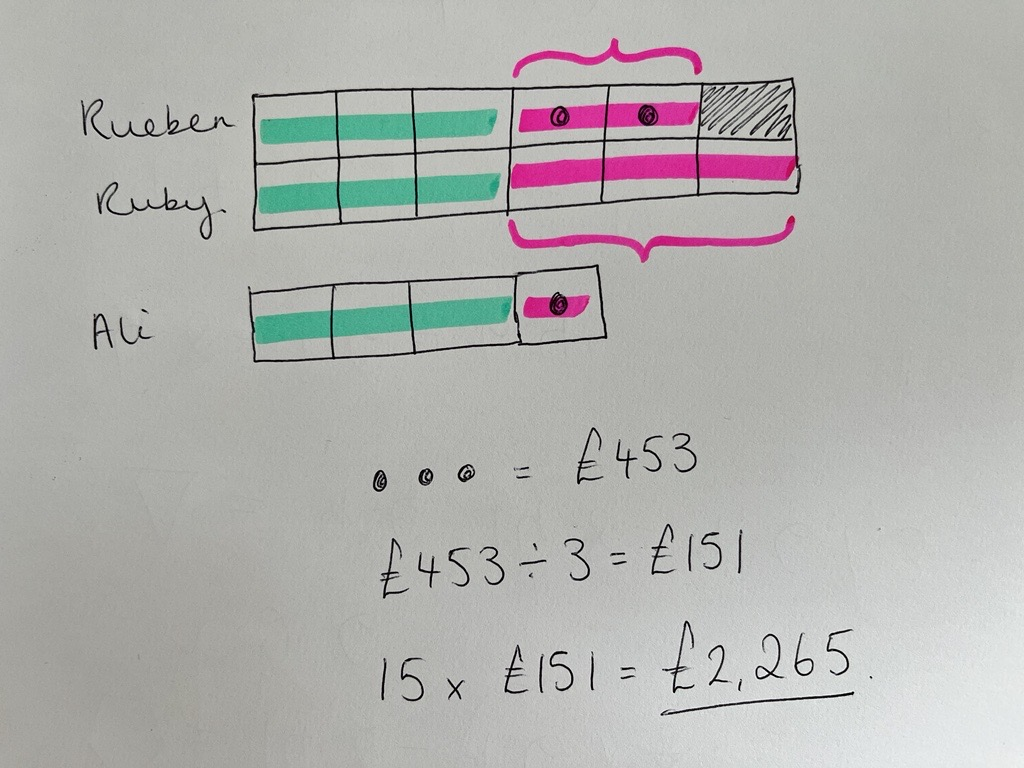 Rueben
Ruby.
Ali
= £453
£453 ÷ 3 = £151
15 x £151 = £2,265.